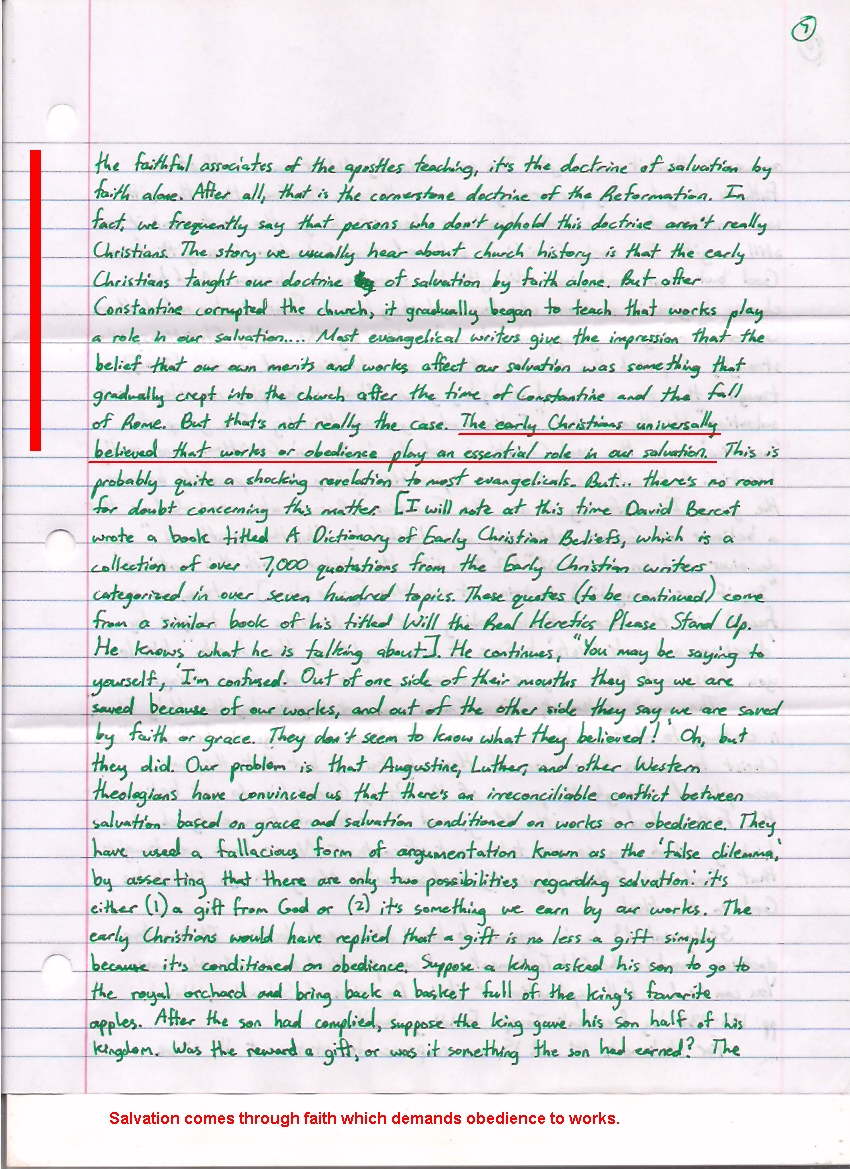 9
the faithful associates of the apostles teaching, it's the doctrine of salvation by
faith alone. After all, that is the cornerstone doctrine of the Reformation. In
fact, we frequently say that persons who don't uphold this doctrine aren't really
Christians. The story we usually hear about church history is that the early
Christians taught our doctrine of salvation by faith alone. But after
Constantine corrupted the church, it gradually began to teach that works play
a role in our salvation.... Most evangelical writers give the impression that the
belief that our own merits and works affect our salvation was something that
gradually crept into the church after the time of Constantine and the fall
of Rome. But that's not really the case. The early Christians universally
believed that works or obedience play an essential role in our salvation. This is
probably quite a shocking revelation to most evangelicals. But... there's no room
for doubt concerning this matter. [I will note at this time David Bercot
wrote a book titled A Dictionary of Early Christian Beliefs, which is a
collection of over 7,000 quotations from the Early Christian writers
categorized in over seven hundred topics. These quotes (to be continued) come
from a similar book of his titled Will the Real Heretics Please Stand Up.
He knows what he is talking about]. He continues, "You may be saying to
yourself, 'I'm confused. Out of one side of their mouths they say we are
saved because of our works, and out of the other side they say we are saved
by faith or grace. They don't seem to know what they believed!' Oh, but
they did. Our problem is that Augustine, Luther, and other Western
theologians have convinced us that there's an irreconciliable conflict between
salvation based on grace and salvation conditioned on works or obedience. They
have used a fallacious form of argumentation known as the 'false dilemma,'
by asserting that there are only two possibilities regarding salvation: it's
either (1) a gift from God or (2) it's something we earn by our works. The
early Christians would have replied that a gift is no less a gift simply
because it's conditioned on obedience. Suppose a king asked his son to go to
the royal orchard and bring back a basket full of the king's favorite
apples. After the son had complied, suppose the king gave his son half of his
kingdom. Was the reward a gift, or was it something the son had earned? The
Salvation comes through faith which demands obedience to works.